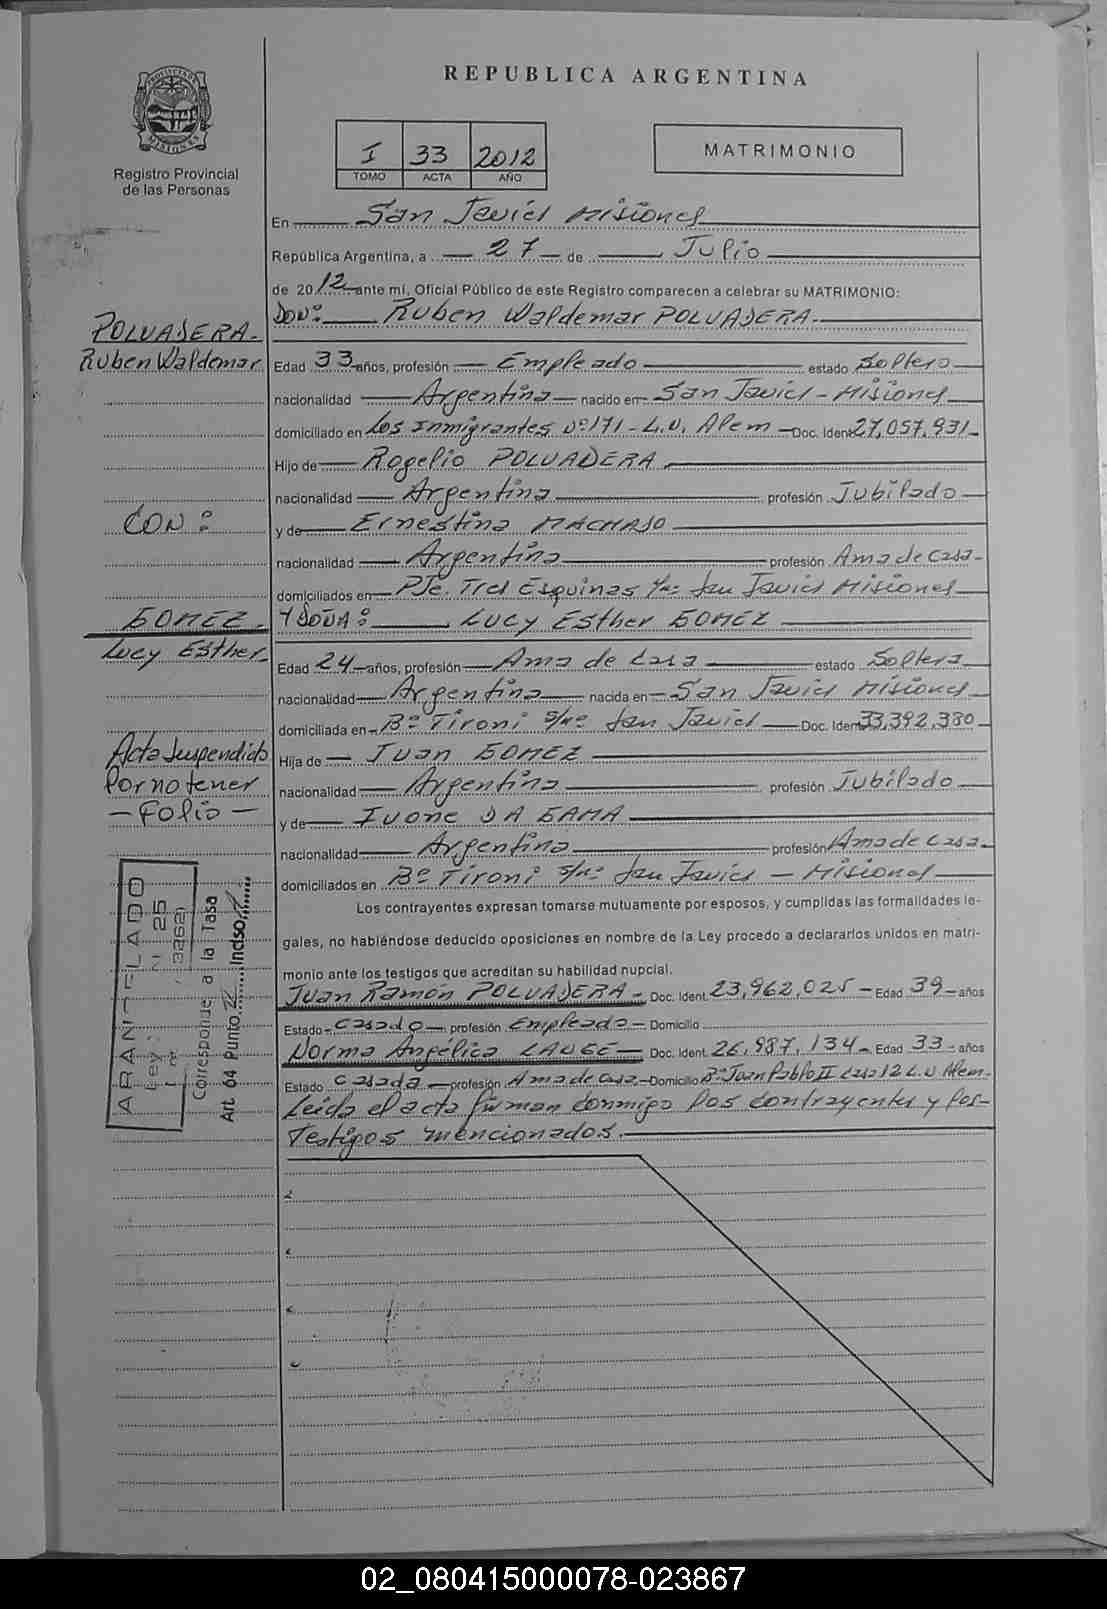 REPUBLICA ARGENTINA
PROVINCIA DE MISIONES
Registro Provincial
de las Personas
I 33 2012
TOMO ACTA AÑO
MATRIMONIO
En San Javier Misiones
República Argentina, a 27 de Julio
de 2012 ante mí, Oficial Público de este Registro comparecen a celebrar su MATRIMONIO:
DON: Ruben Waldemar POLVADERA.
POLVADERA.
Ruben Waldemar
Edad 33 años, profesión Empleado estado Soltero
nacionalidad Argentina nacido en San Javier - Misiones
domiciliado en Los Inmigrantes Nº 171 - L.N. Alem - Doc. Ident 27,057,931-
Hijo de Rogelio POLVADERA
nacionalidad Argentina profesión Jubilado
CON:
y de Ernestina MACHADO
nacionalidad Argentina profesión Ama de casa-
domiciliados en Pje. Tres Esquinas s/nº San Javier Misiones
GOMEZ.
Lucy Esther.
Y DOÑA: Lucy Esther GOMEZ
Edad 24 años, profesión Ama de casa estado Soltera
nacionalidad Argentina nacida en San Javier Misiones
domiciliada en Bº Tironi s/nº San Javier Doc. Ident 33,392,380-
Acta suspendido
Por no tener
- Folio -
Hija de Juan GOMEZ
nacionalidad Argentina profesión Jubilado
y de Ivone DA GAMA
nacionalidad Argentina profesión Ama de casa.
domiciliados en Bº Tironi s/nº San Javier - Misiones
Los contrayentes expresan tomarse mutuamente por esposos, y cumplidas las formalidades le-
gales, no habiéndose deducido oposiciones en nombre de la Ley procedo a declararlos unidos en matri-
monio ante los testigos que acreditan su habilidad nupcial.
Juan Ramón POLVADERA - Doc. Ident. 23,962,025 - Edad 39 - años
Estado - Casado - profesión Empleado - Domicilio
Norma Angélica LANGE Doc. Ident. 26,987,134 - Edad 33 - años
Estado Casada - profesión Ama de casa - Domicilio Bº Juan Pablo II casa 12 L.N Alem.
Leída el acta firman conmigo los contrayentes y los
Testigos mencionados.
ARANCELADO
Ley N 25
(3262)
Corresponde a la Tasa
Art. 64 Punto Inciso
02_080415000078-023867